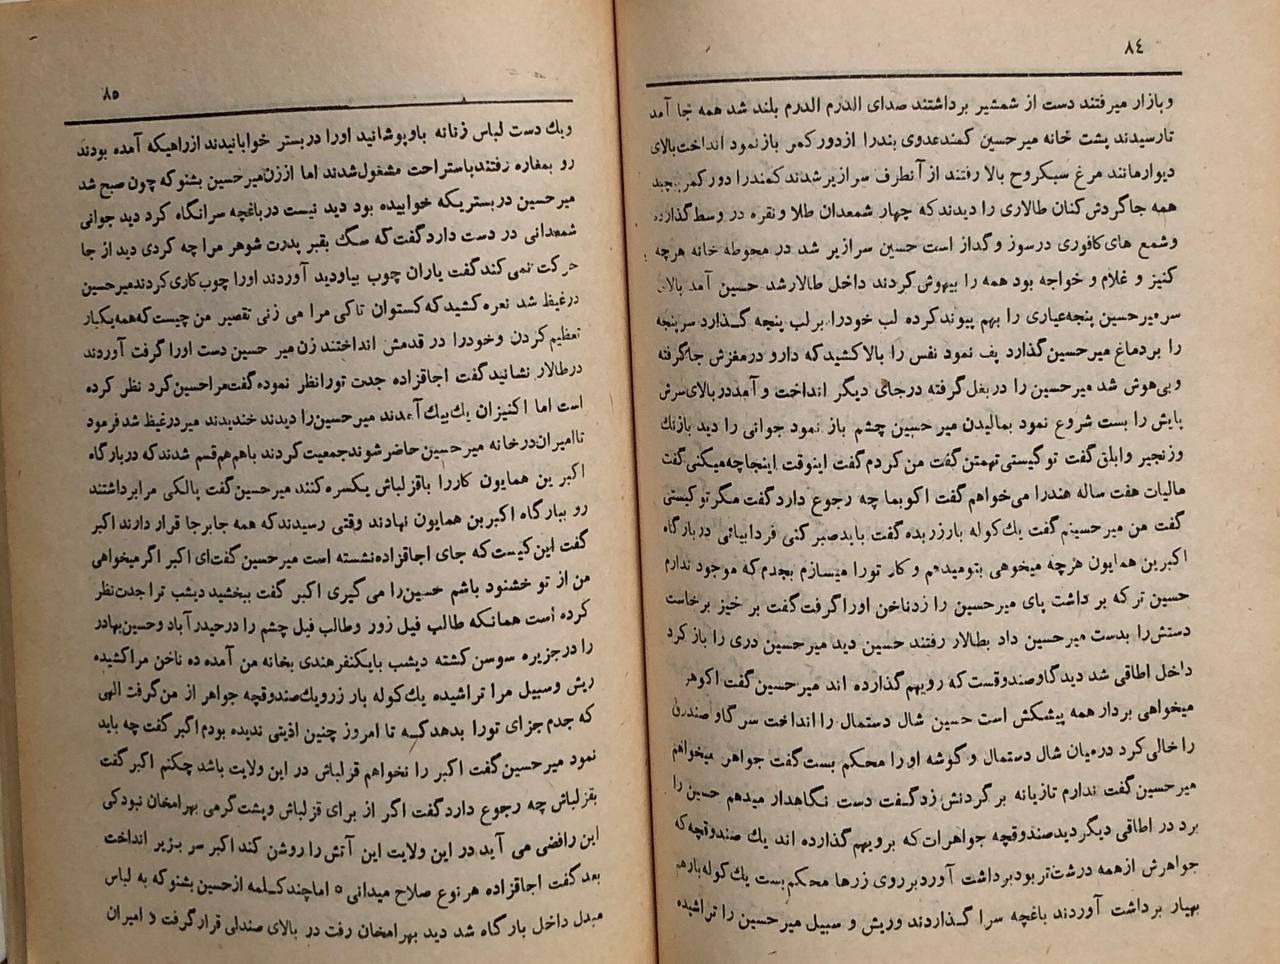 ٨٤
وبازار میرفتند دست از شمشیر برداشتند صدای الدرم الدرم بلند شد همه جا آمد
تارسیدند پشت خانه میرحسین کمندعدوی بندرا ازدور کمر باز نمود انداخت بالای
دیوارمانند مرغ سبکروح بالا رفتند از آنطرف سرازیر شدند کمندرا دور کمر پیچید
همه جاگردش کنان طالاری را دیدند که چهار شمعدان طلا ونقره در وسط گذارده
وشمع های کافوری درسوز و گداز است حسین سرازیر شد در محوطه خانه هرچه
کنیز و غلام و خواجه بود همه را بیهوش کردند داخل طالار شد حسین آمد بالای
سر میرحسین پنجه عیاری را بهم پیوند کرده لب خودرا بر لب پنجه گذارد سر پنجه
را بردماغ میرحسین گذارد پف نمود نفس را بالا کشید که دارو درمغزش جا گرفته
وبی هوش شد میرحسین را دربغل گرفته درجای دیگر انداخت و آمد در بالای سرش
پایش را بست شروع نمود بمالیدن میر حسین چشم باز نمود جوانی را دید بازنك
وزنجیر وابلق گفت تو کیستی تهمتن گفت من کردم گفت اینوقت اینجاچه میکنی گفت
مالیات هفت ساله هندرا می خواهم گفت اکو بما چه رجوع دارد گفت مگر تو کیستی
گفت من میرحسینم گفت یك کوله بارزر بده گفت باید صبر کنی فردا بیائی دربارگاه
اکبربن همایون هرچه میخوهی بتو میدهم و کار تورا میسازم بجدم که موجود ندارم
حسین ترکه برداشت پای میرحسین را زدناخن اوراگرفت گفت بر خیز برخاست
دستش را بدست میرحسین داد بطالار رفتند حسین دید میرحسین دری را باز کرد
داخل اطاقی شد دید گاو صندوقست که رویهم گذارده اند میرحسین گفت اکوهر
میخواهی بردار همه پیشکش است حسین شال دستمال را انداخت سر گاو صندوق
را خالی کرد درمیان شال دستمال و گوشه او را محکم بست گفت جواهر میخواهم
میرحسین گفت ندارم تازیانه بر گردنش زد گفت دست نگاهدار میدهم حسین را
برد در اطاقی دیگر دید صندوقچه جواهرات که برویهم گذارده اند یك صندوقچه که
جواهرش از همه درشت تر بود برداشت آورد برروی زرها محکم بست یك کوله بار هم
بهیار برداشت آوردند باغچه سرا گذاردند وریش و سبیل میرحسین را تراشیده
٨٥
ویك دست لباس زنانه باو پوشانید اورا در بستر خوابانیدند ازراهیکه آمده بودند
رو بمغاره رفتند باستراحت مشغول شدند اما اززن میرحسین بشنو که چون صبح شد
میرحسین دربستریکه خوابیده بود دید نیست درباغچه سرانگاه کرد دید جوانی
شمعدانی در دست دارد گفت که سگ بقبر پدرت شوهر مرا چه کردی دید از جا
حرکت نمی کند گفت یاران چوب بیاودید آوردند اورا چوب کاری کردند میرحسین
درغیظ شد نعره کشید که کستوان تاکی مرا می زنی تقصیر من چیست که همه یکبار
تعظیم کردن وخودرا در قدمش انداختند زن میر حسین دست اورا گرفت آوردند
درطالار نشانید گفت اجاقزاده جدت تورانظر نموده گفت مراحسین کرد نظر کرده
است اما اکنیزان یك بیك آمدند میرحسین را دیدند خندیدند میر درغیظ شد فرمود
تاامیران درخانه میرحسین حاضر شوند جمعیت کردند باهم هم قسم شدند که دربارگاه
اکبر بن همایون کاررا باقزلباش یکسره کنند میرحسین گفت پالکی مرا برداشتند
رو ببارگاه اکبر بن همایون نهادند وقتی رسیدند که همه جابرجا قرار دارند اکبر
گفت این کیست که جای اجاقزاده نشسته است میرحسین گفت ای اکبر اگر میخواهی
من از تو خشنود باشم حسین را می گیری اکبر گفت ببخشید دیشب ترا جدت نظر
کرده است همانکه طالب فیل زور وطالب فیل چشم را در حیدر آباد وحسین بهادر
را درجزیره سوسن کشته دیشب بایکنفر هندی بخانه من آمده ده ناخن مرا کشیده
ریش وسبیل مرا تراشیده یك کوله بار زر ویك صندوقچه جواهر از من گرفت الهی
که جدم جزای تورا بدهد که تا امروز چنین اذیتی ندیده بودم اکبر گفت چه باید
نمود میرحسین گفت اکبر را نخواهم قزلباش در این ولایت باشد چکنم اکبر گفت
بقزلباش چه رجوع دارد گفت اگر از برای قزلباش وپشت گرمی بهرامخان نبود کی
این رافضی می آید در این ولایت این آتش را روشن کند اکبر سر بزیر انداخت
بعد گفت اجاقزاده هر نوع صلاح میدانی ٥ اما چند کلمه از حسین بشنو که به لباس
مبدل داخل بارگاه شد دید بهرامخان رفت در بالای صندلی قرار گرفت و امیران